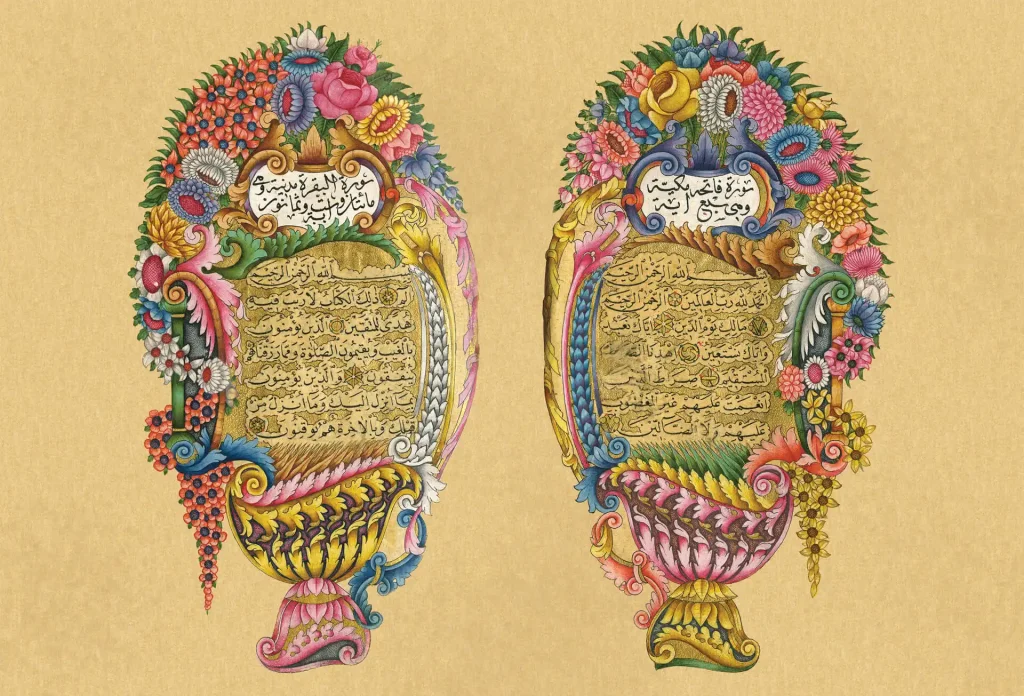 سورة فاتحه مكية
وهي سبع اية
بسم الله الرحمن الرحيم
الحمد لله رب العالمين الرحمن الرحيم
مالك يوم الدين اياك نعبد
واياك نستعين اهدنا الصراط
المستقيم صراط الذين
انعمت عليهم غير المغضوب
عليهم ولا الضالين
سورة البقرة مدنية وهي
مائتان وست وثمانون
اية
بسم الله الرحمن الرحيم
الم ذلك الكتاب لا ريب فيه
هدى للمتقين الذين يؤمنون
بالغيب ويقيمون الصلوة ومما رزقناهم
ينفقون والذين يؤمنون
بما انزل اليك وما انزل من
قبلك وبالاخرة هم يوقنون